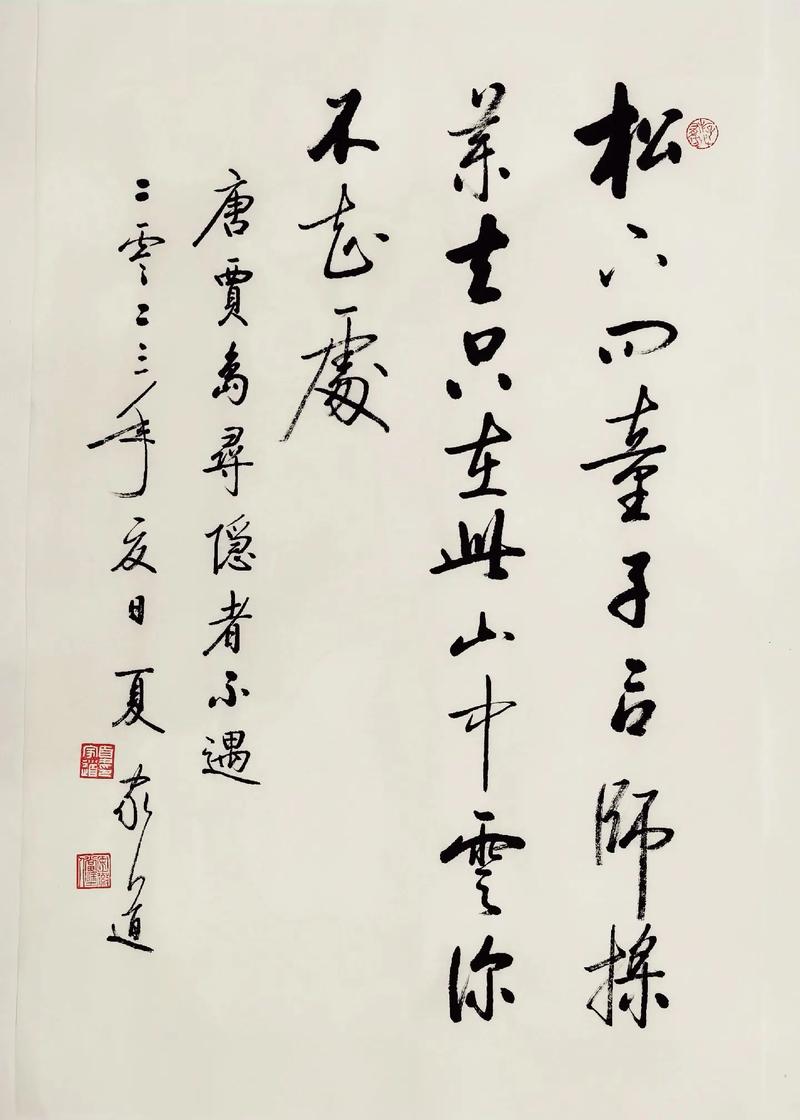 松下问童子言師採
薬去只在此山中雲深
不知處
唐賈島尋隐者不遇
二零二三年夏日夏家道